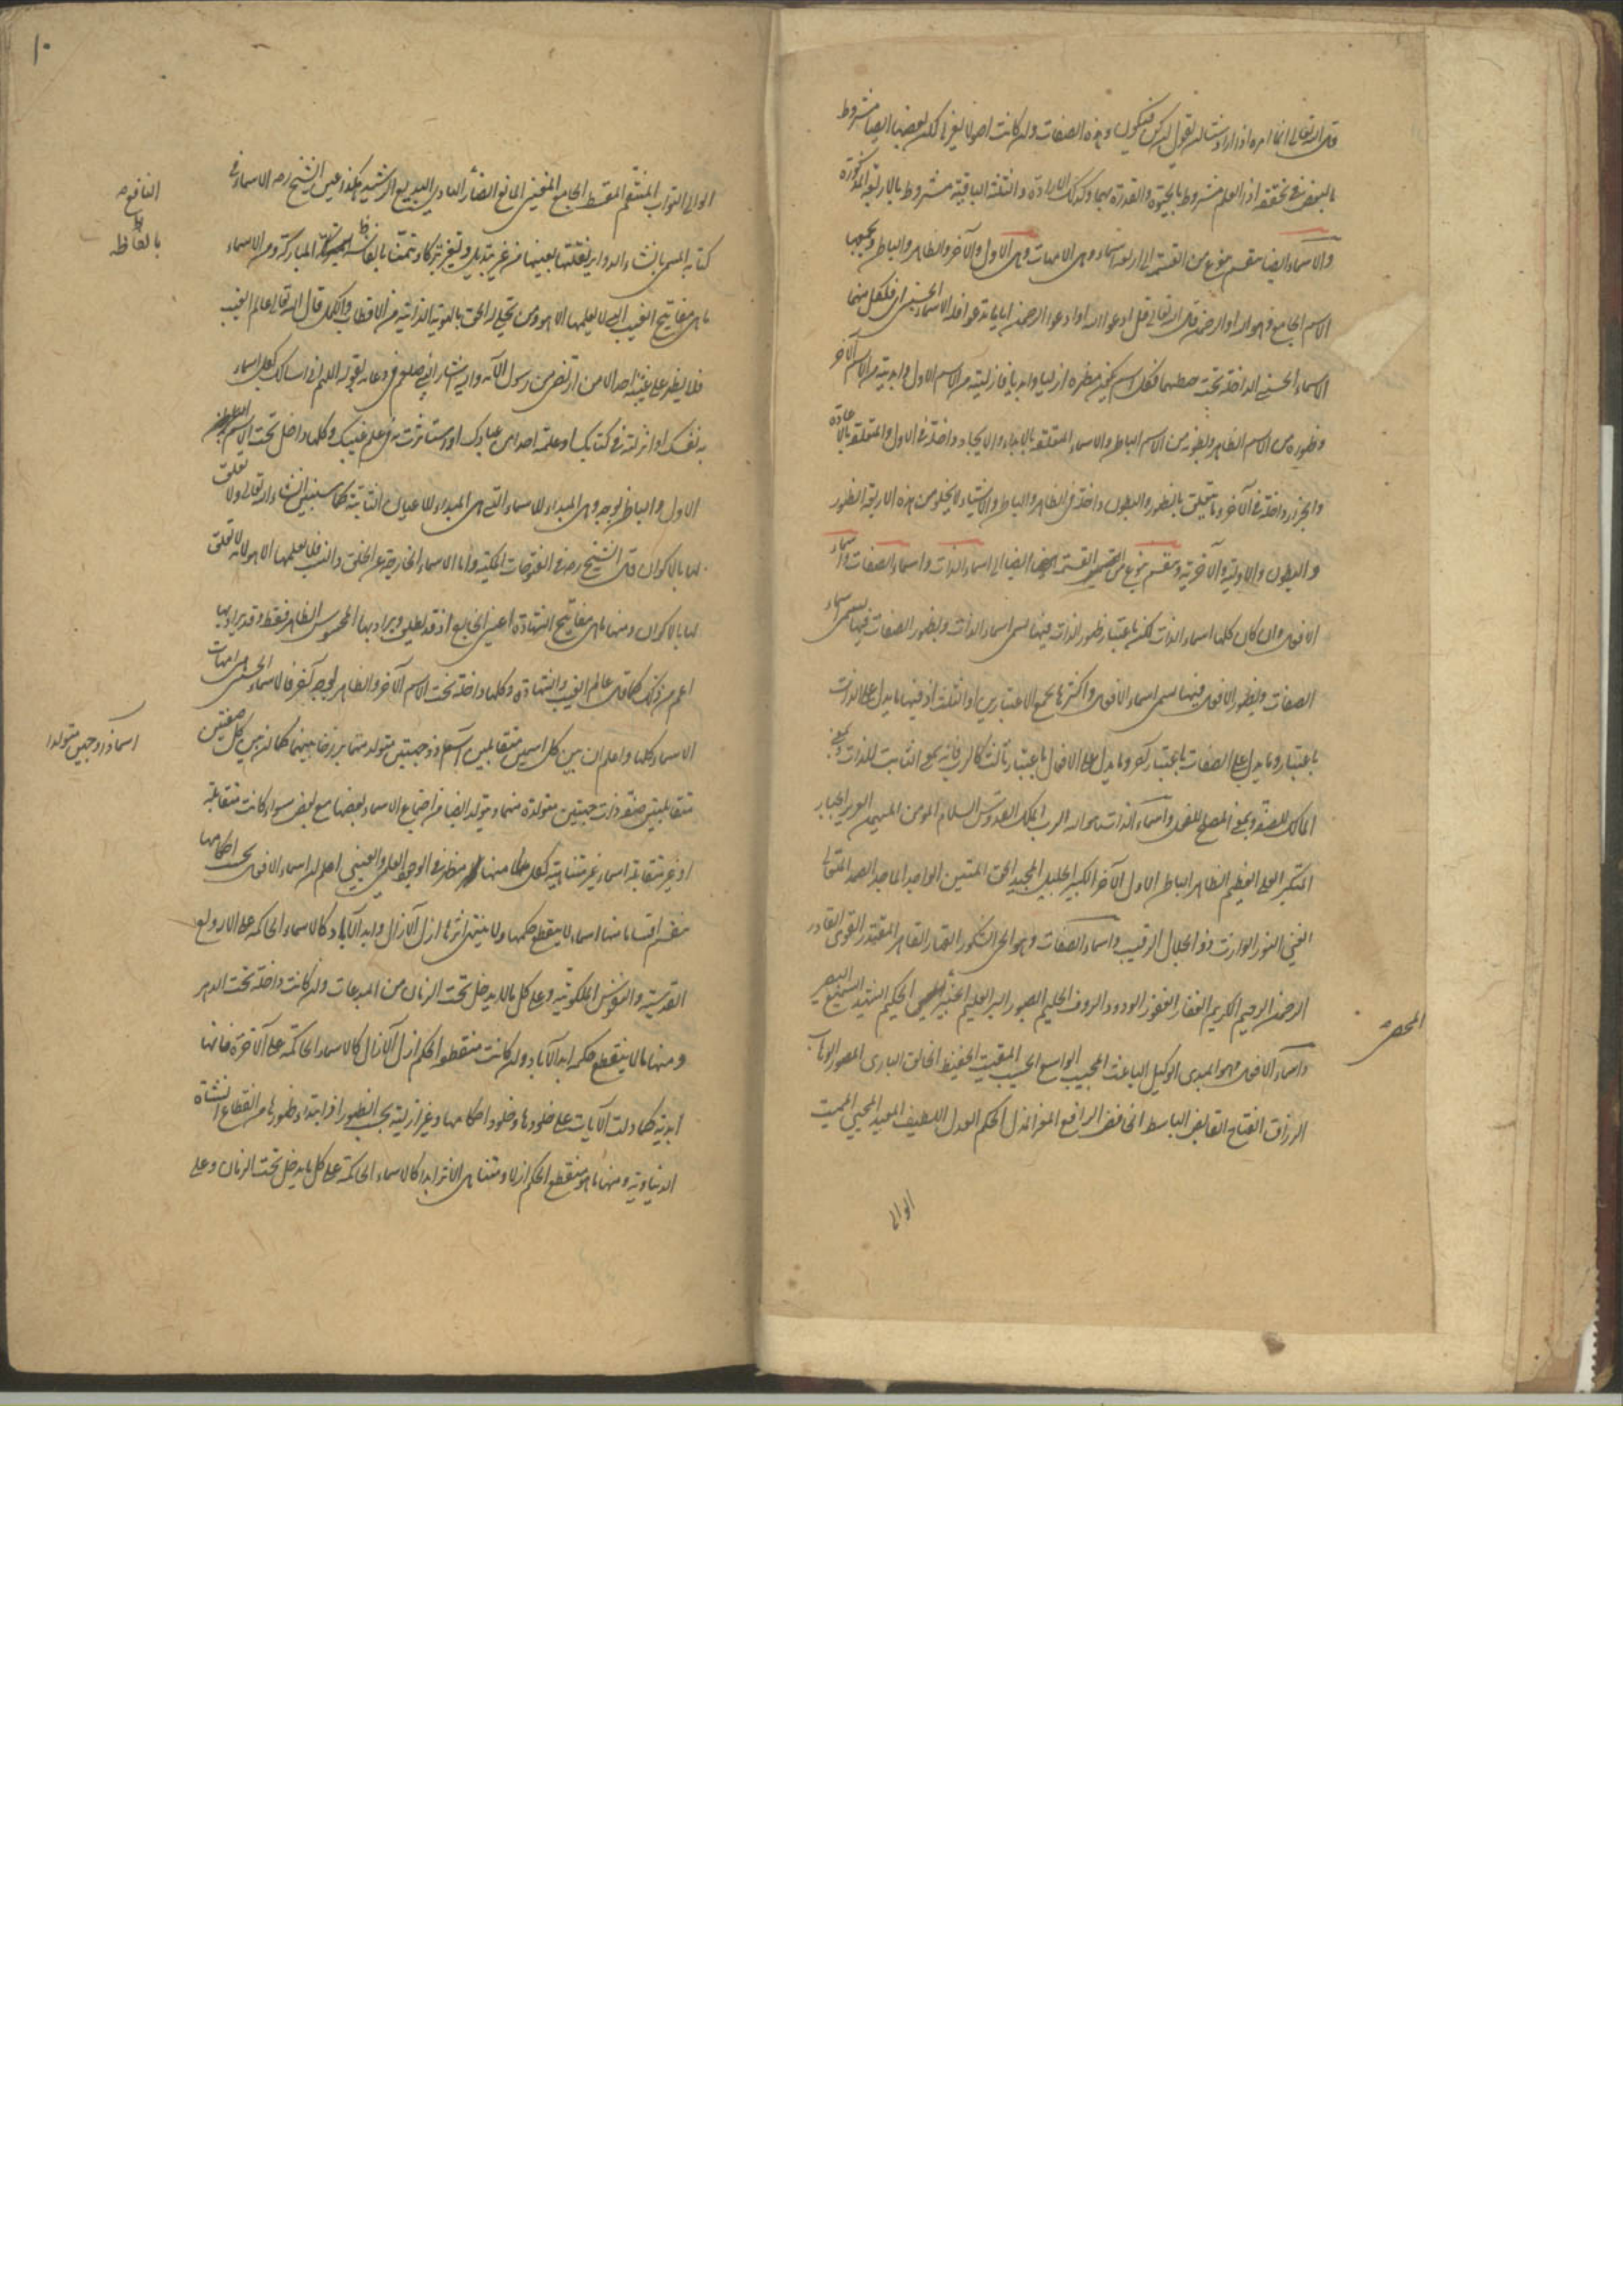 قال الله تعالى انما امره اذا اراد شيئا ان يقول له كن فيكون وهذه الصفات وان كانت اصولا لغيرها لكن بعضها ايضا مشروط
بالبعض فى تحققه اذ العلم مشروط بالحيوة والقدرة بهما وكذلك الارادة والثلثة الباقية مشروط بالاربعة المذكورة
والاسماء ايضا تنقسم بنوع من القسمة الى اربعة اسماء وهى الامهات وهى الاول والآخر والظاهر والباطن ويجمعها
الاسم الجامع وهو الله او الرحمن قال الله تعالى قل ادعوا الله او ادعوا الرحمن ايا ما تدعوا فله الاسماء الحسنى اى فلكل منهما
الاسماء الحسنى الداخلة تحت حيطتهما فكل اسم يكون مظهره ازليا وابديا فازليته من الاسم الاول وابديته من الاسم الآخر
وظهوره من الاسم الظاهر وبطونه من الاسم الباطن والاسماء المتعلقة بالابداء والايجاد داخلة فى الاول والمتعلقة بالاعادة
والجزاء داخلة فى الآخر وما يتعلق بالظهور والبطون داخلة فى الظاهر والباطن والاشياء لا يخلو من هذه الاربعة الظهور
والبطون والاولية والآخرية وتنقسم بنوع من القسمة ايضا الى اسماء الذات واسماء الصفات واسماء
الافعال وان كان كلها اسماء الذات لكن باعتبار ظهور الذات فيها يسمى اسماء الذات وبظهور الصفات فيها يسمى اسماء
الصفات وبظهور الافعال فيها يسمى اسماء الافعال واكثرها يجمع الاعتبارين او الثلث اذ فيها ما يدل على الذات
باعتبار وما يدل على الصفات باعتبار آخر وما يدل على الافعال باعتبار ثالث كالرب فانه بمعنى الثابت للذات وبمعنى
المالك للصفة وبمعنى المصلح للفعل واسماء الذات هو الله الرب الملك القدوس السلام المؤمن المهيمن العزيز الجبار
المتكبر العلى العظيم الظاهر الباطن الاول الآخر الكبير الجليل المجيد الحق المتين الواجد الماجد الصمد المتعالى
الغنى النور الوارث ذو الجلال الرقيب واسماء الصفات وهو الحى الشكور القهار القاهر المقتدر القوى القادر
الرحمن الرحيم الكريم الغفار الغفور الودود الرؤف الحليم الصبور البر العليم الخبير الحكيم الشهيد السميع البصير
المحصى
واسماء الافعال هو المبدى الوكيل الباعث المجيب الواسع الحسيب المقيت الحفيظ الخالق البارى المصور الوهاب
الرزاق الفتاح القابض الباسط الخافض الرافع المعز المذل الحكم العدل اللطيف المعيد المحيى المميت
الوالى
١٠
الوالى التواب المنتقم المقسط الجامع المغنى المانع الضار الهادى البديع الرشيد هكذا عين الشيخ رض الاسماء فى
النافع
كتابه المسمى بانشاء الدواير نقلتها بعينها من غير تبديل وتغيير تبركا وتيمنا بانفاسه المباركة ومن الاسماء
بالفاظه
ما هى مفاتيح الغيب التى لا يعلمها الا هو ومن تجلى له الحق بالهوية الذاتية من الاقطاب والكمل قال الله تعالى عالم الغيب
فلا يظهر على غيبه احدا الا من ارتضى من رسول الآية واليه اشار النبى صلعم فى دعائه بقوله اللهم انى اسالك بكل اسم سميت
به نفسك او انزلته فى كتابك او علمته احدا من عبادك او استأثرت به فى علم غيبك وكلها داخل تحت الاسم
الاول والباطن بوجه وهى المبداء للاسماء التى هى المبداء للاعيان الثابتة كما سنبين ان شاء الله تعالى ولا تعلق
لها بالاكوان قال الشيخ رض فى الفتوحات المكية واما الاسماء الخارجة عن الخلق والنسب فلا يعلمها الا هو لانه لا تعلق
لها بالاكوان ومنها ما هى مفاتيح الشهادة اعنى الخارج اذ قد يطلق ويراد بها المحسوس الظاهر فقط وقد يراد بها
اعم من ذلك كما قال عالم الغيب والشهادة وكلها داخلة تحت الاسم الآخر والظاهر بوجه آخر فالاسماء الحسنى هى امهات
الاسماء كلها واعلم ان بين كل اسمين متقابلين اسما ذو جهتين متولدا منهما برزخا بينهما كما ان بين كل صفتين
اسما ذو وجهين متولدا
متقابلتين صفة ذات جهتين متولدة منهما ويتولد ايضا من اجتماع الاسماء بعضها مع بعض سواء كانت متقابلة
او غير متقابلة اسماء غير متناهية ولكل منها مظهر فى الوجود العلمى والعينى اعلم ان اسماء الافعال بحسب احكامها
تنقسم اقساما منها اسماء لا ينقطع حكمها ولا ينتهى اثرها ازل الآزال وابد الآباد كالاسماء الحاكمة على الارواح
القدسية والنفوس الملكوتية وعلى كل ما لا يدخل تحت الزمان من المبدعات وان كانت داخلة تحت الدهر
ومنها ما لا ينقطع حكمه ابد الآباد وان كانت منقطع الحكم ازل الآزال كالاسماء الحاكمة على الآخرة فانها
ابدية كما دلت الآيات على خلودها وخلود احكامها وغير ازلية بحسب الظهور اذ ابتداء ظهورها من انقطاع النشأة
الدنياوية ومنها ما هو منقطع الحكم ازلا ومتناهى الاثر ابدا كالاسماء الحاكمة على كل ما يدخل تحت الزمان وعلى